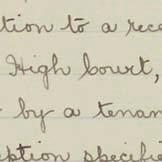 tion to a rec
High Court,
by a tenan
ption specifi